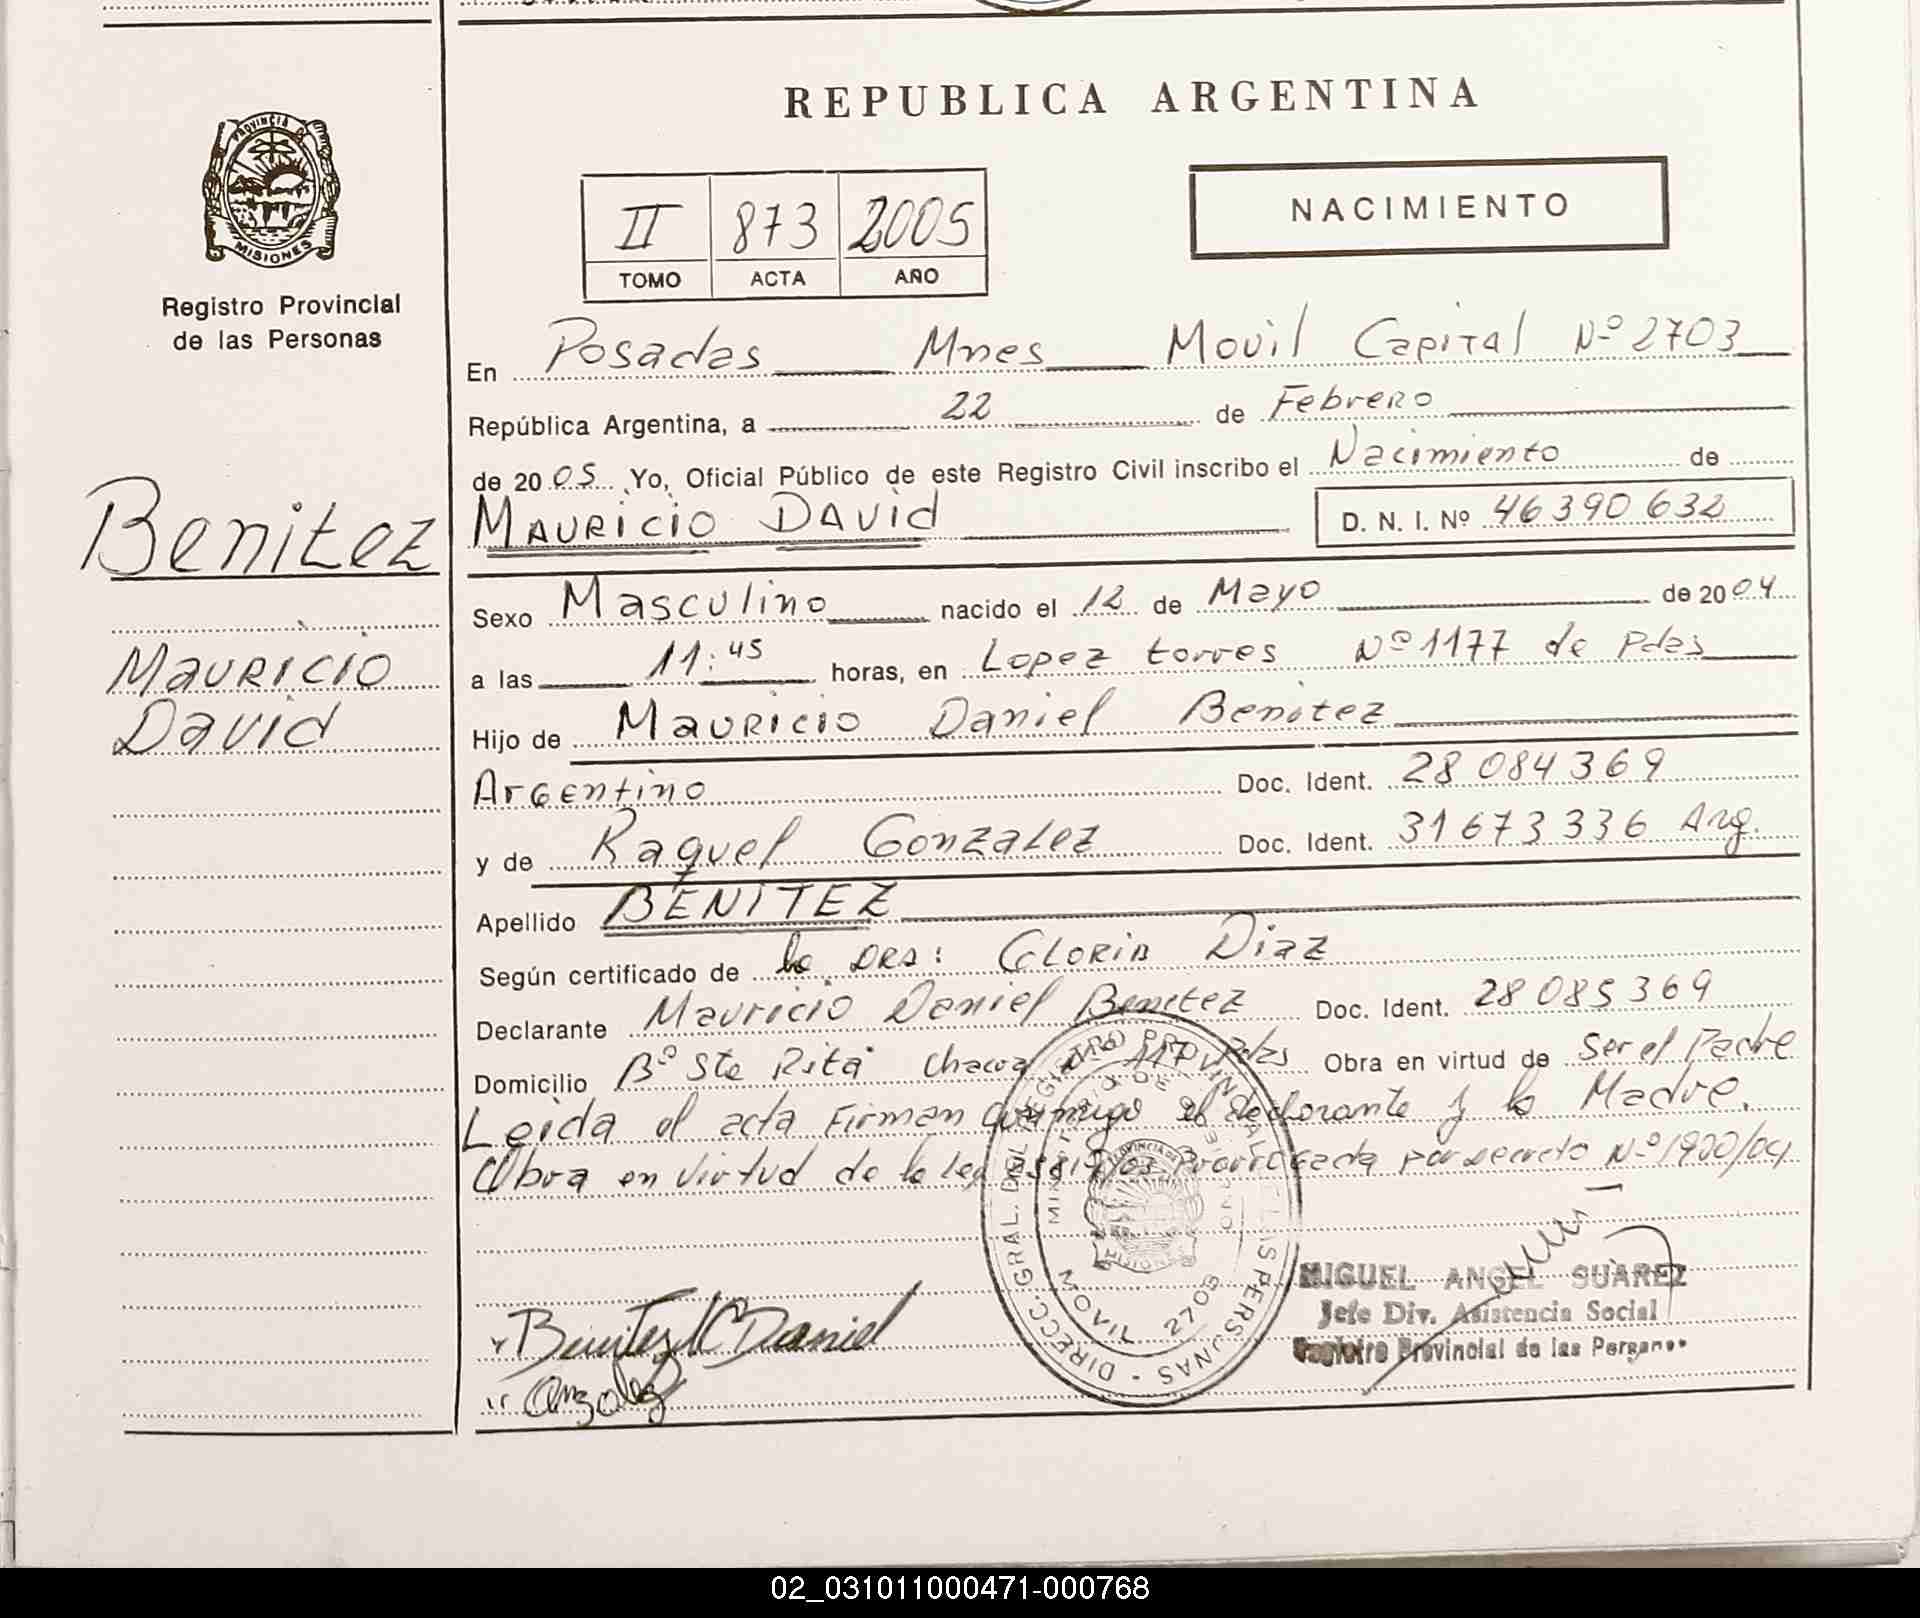 REPUBLICA ARGENTINA
PROVINCIA DE
MISIONES
Registro Provincial
de las Personas
II 873 2005
TOMO ACTA AÑO
NACIMIENTO
En Posadas Mnes Movil Capital Nº 2703
República Argentina, a 22 de Febrero
de 2005 Yo, Oficial Público de este Registro Civil inscribo el Nacimiento de
Benitez
MAURICIO DAVID D. N. I. Nº 46390632
Sexo Masculino nacido el 12 de Mayo de 2004
Mauricio
David
a las 11:45 horas, en Lopez torres Nº 1177 de Pdas
Hijo de Mauricio Daniel Benitez
Argentino Doc. Ident. 28 084 369
y de Raquel Gonzalez Doc. Ident. 31673336 Arg.
Apellido BENITEZ
Según certificado de la DRA: GLORIA Diaz
Declarante Mauricio Daniel Benitez Doc. Ident. 28 085 369
Domicilio Bº Sta Rita Chacra Nº 117 Pdas Obra en virtud de Ser el Padre
Leida el acta Firman conmigo el declarante y la Madre.
Obra en virtud de la ley Prorrogada por decreto Nº 1900/04
DIRECC. GRAL. DEL REGISTRO PROVINCIAL DE LAS PERSONAS
MOVIL 2703
Benitez M Daniel
MIGUEL ANGEL SUAREZ
Jefe Div. Asistencia Social
Registro Provincial de las Personas
02_031011000471-000768